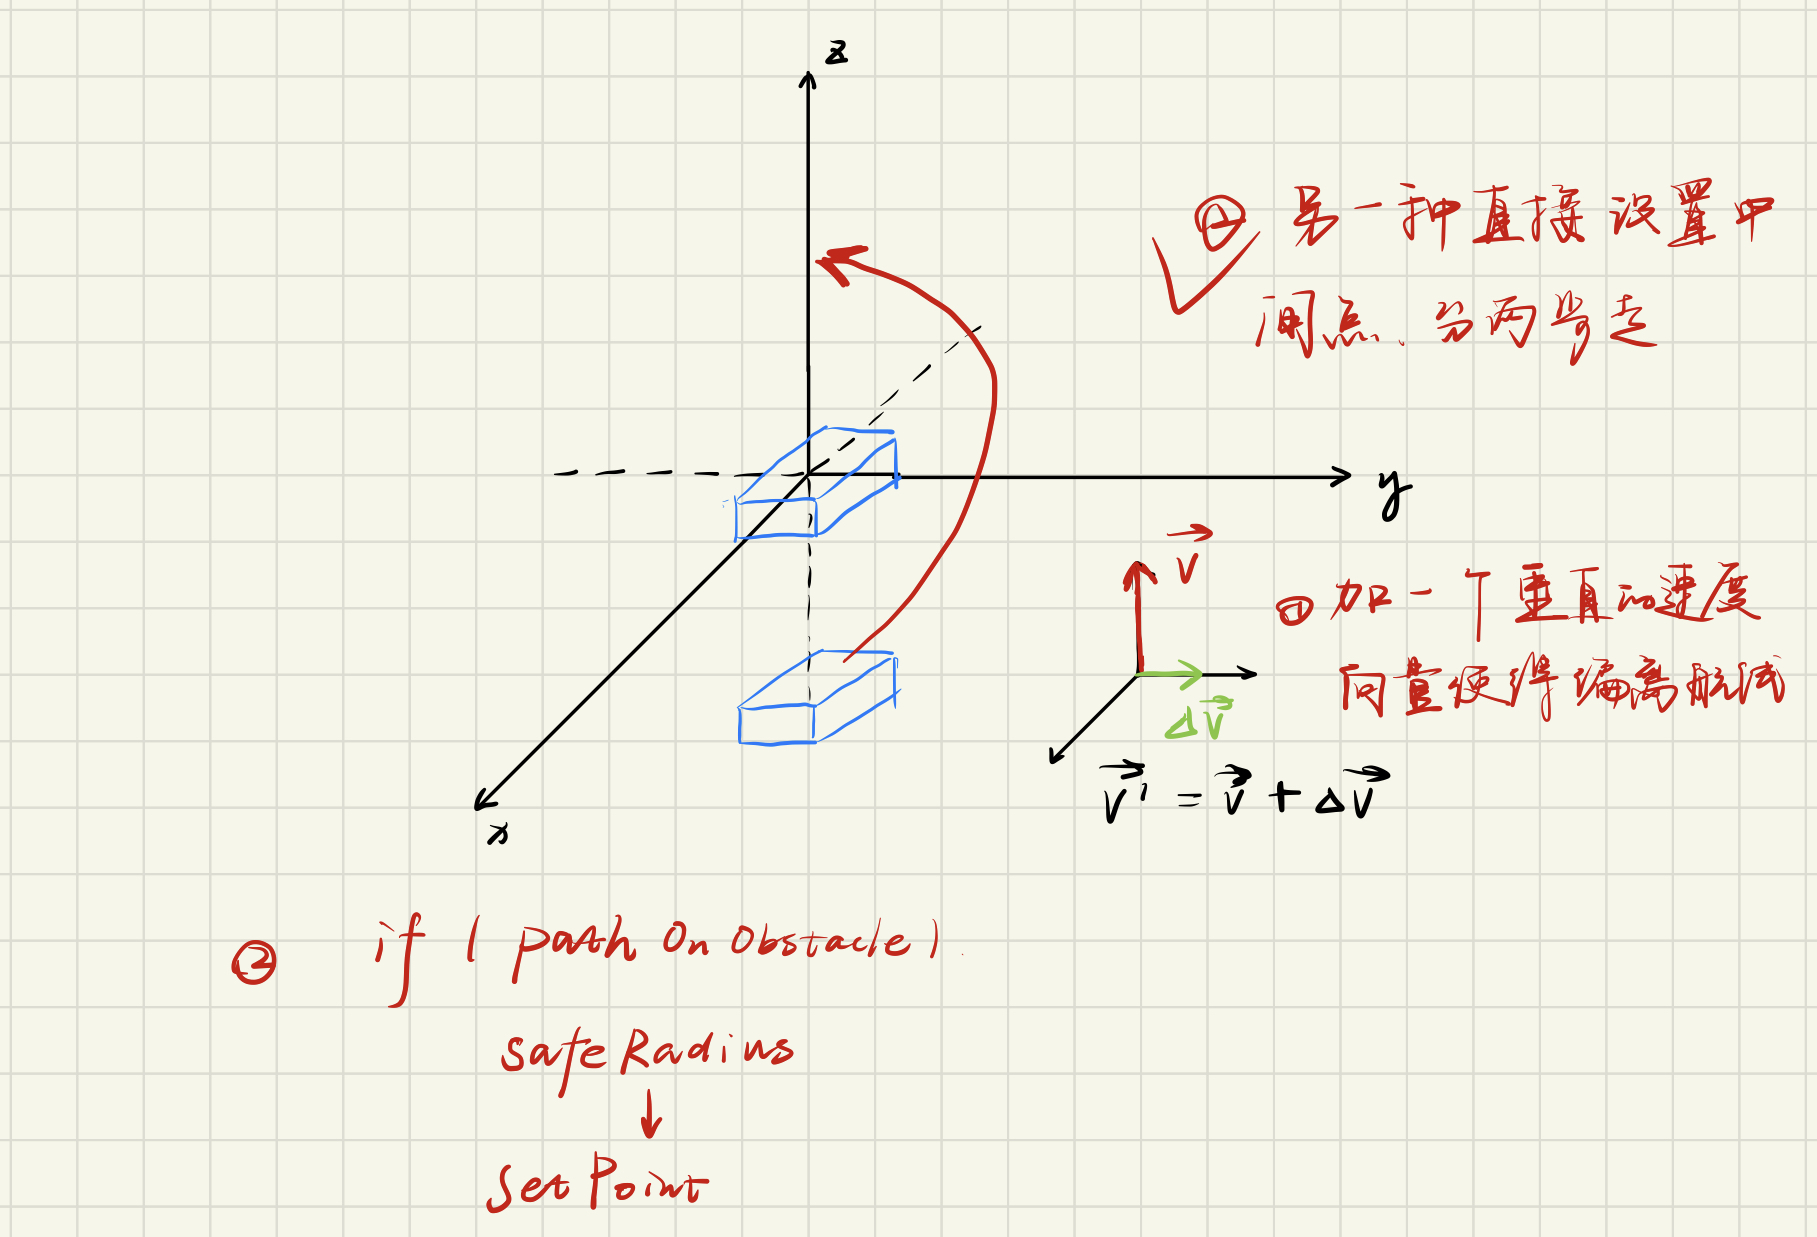 z
② 另一种直接设置中
间点、分两步走
y
v
① 加一个垂直的速度
向量使得偏离航线
Δv
v' = v + Δv
x
② if ( path On Obstacle )
safe Radius
↓
Set Point